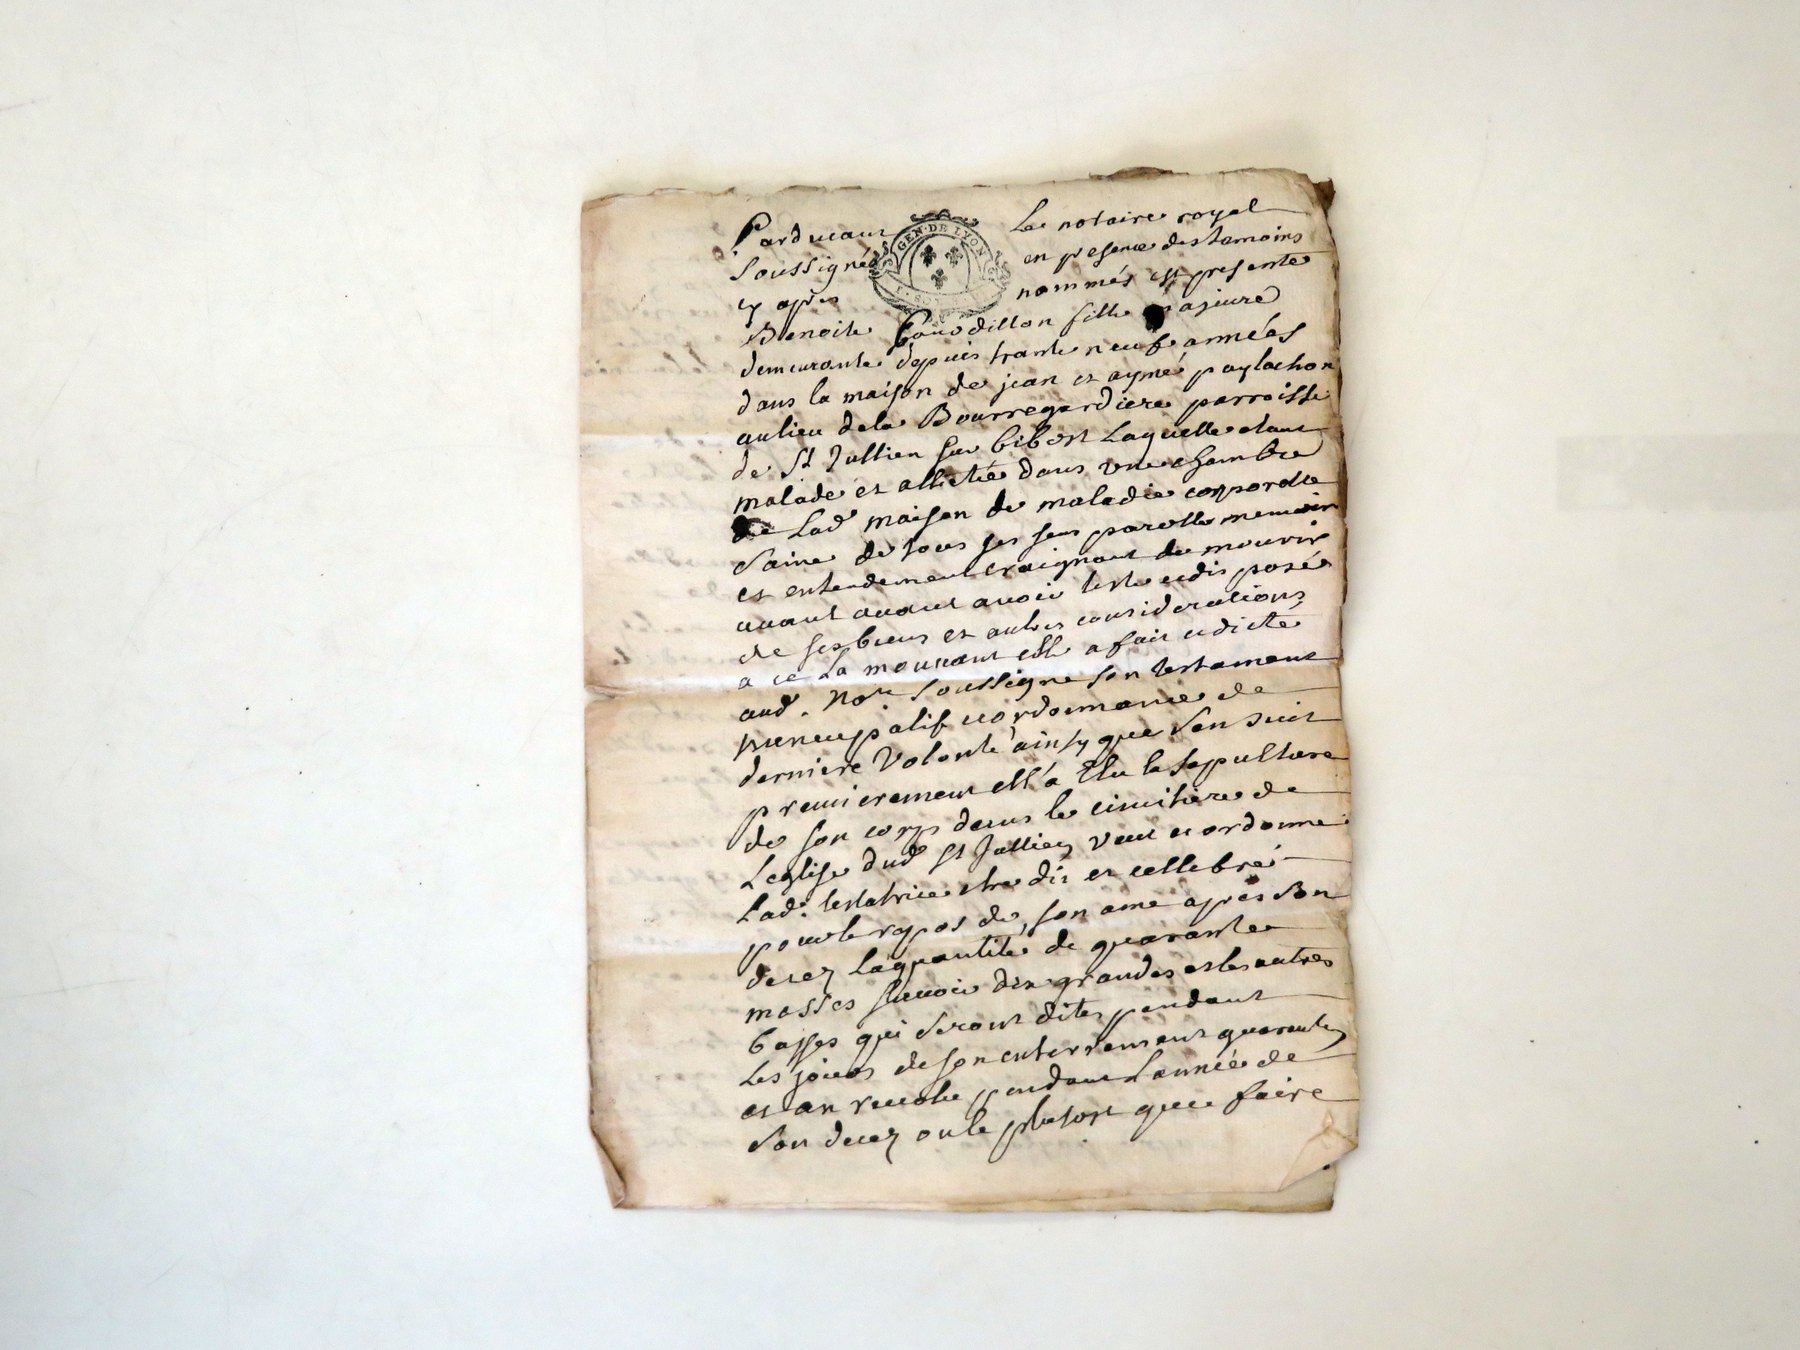 Pardevant Le notaire royal
soussigné en presence des temoins
cy après nommés est presente
GEN·DE LYON
Benoite fille majeure
demeurante depuis trante neuf années
dans la maison de jean et aymé paylachon
au lieu dela Bourregardiere parroisse
de St Jullien sur bibost Laquelle etant
malade et allictée dans une chambre
de Lade maison de maladie corporelle
saine de tous ses sens parolle memoir
et entendement craignant de mourir
avant avoir testé et disposé
de ses biens et autres considerations
a ce La mouvant elle a fait et dicté
aud. Nore soussigné son testament
nuncupatif et ordonnance de
derniere Volonté ainsy que s'en suit
premierement ell'a Elu la sepulture
de son corps dans le cimitiere de
Leglise dud St Jullien veut et ordonne
Lade testatrice etre dit et cellebré
pour le repos de son ame après son
decez la quantité de quarante
messes sçavoir dix grandes et les autres
basses qui seront dites pendant
Les jours de son enterrement quarantin
et an revolu pendant L'année de
son decez ou le plutost que faire